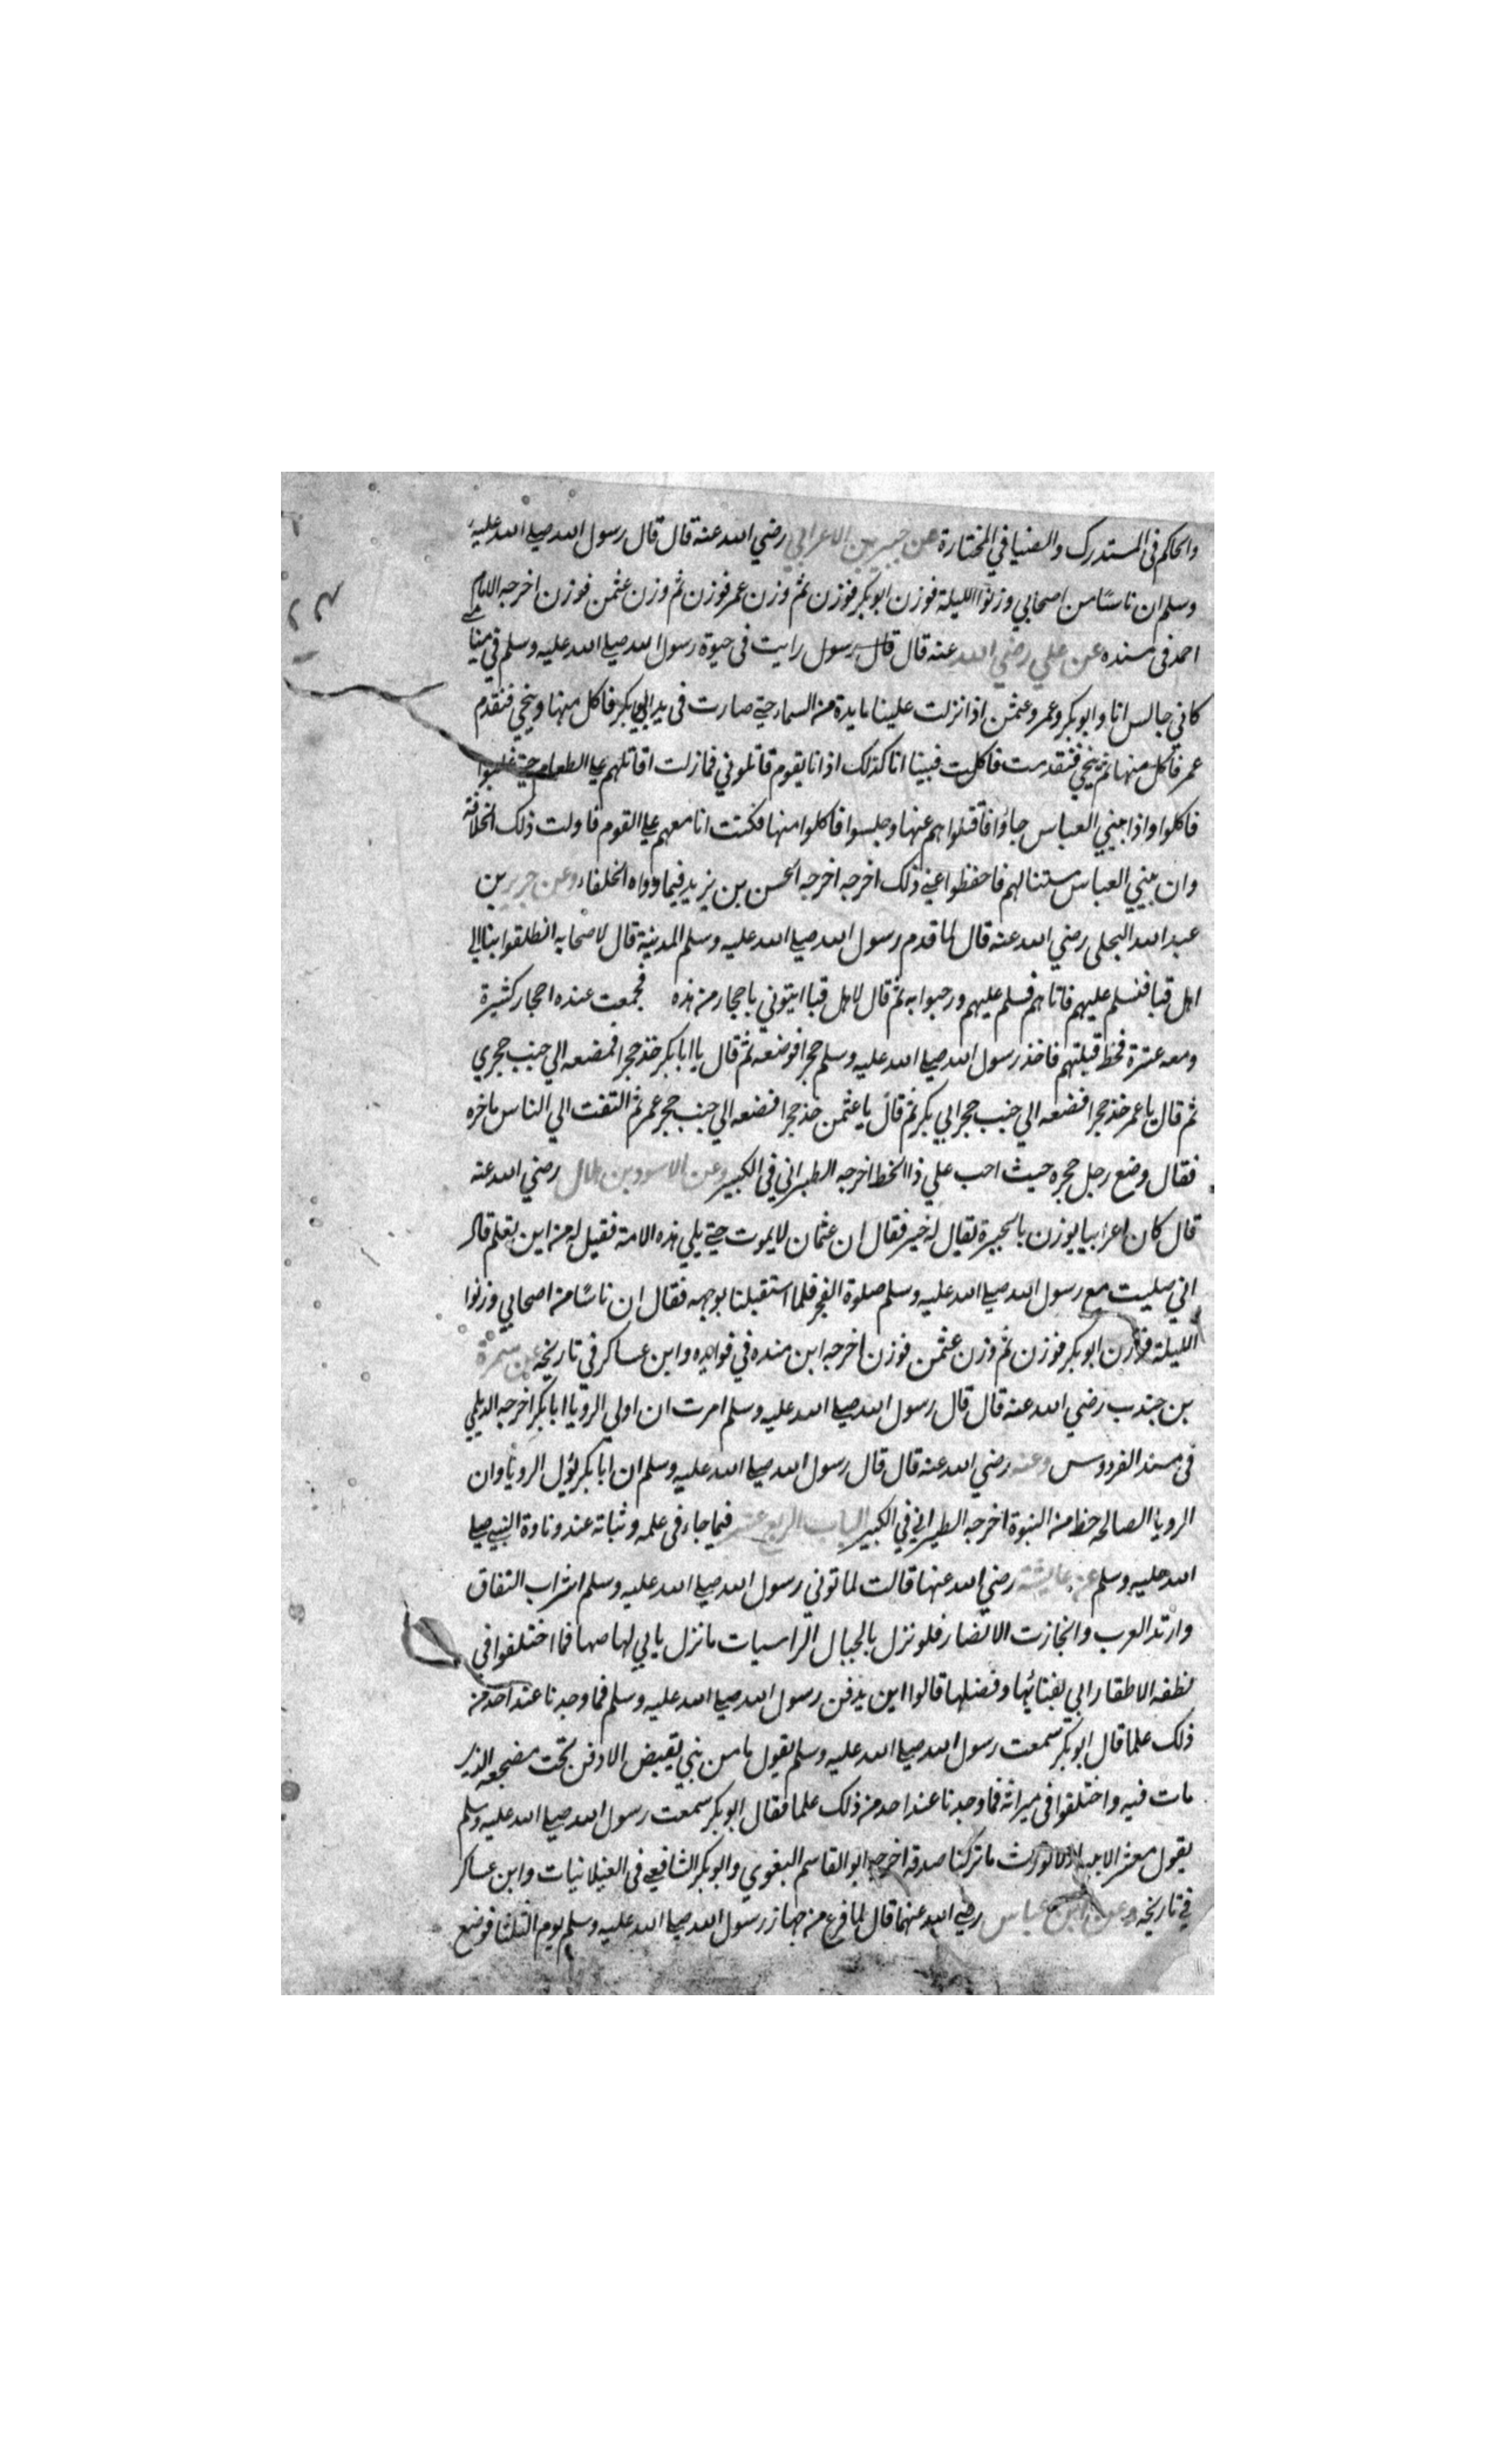 والحاكم في المستدرك والضيا في المختارة عن جبير بن الاعرابي رضي الله عنه قال قال رسول الله صلي الله عليه
وسلم ان ناسًا من اصحابي وزنوا الليلة فوزن ابوبكر فوزن ثم وزن عمر فوزن ثم وزن عثمن فوزن اخرجه الامام
احمد في مسنده عن علي رضي الله عنه قال قال رسول رايت في حيوة رسول الله صلي الله عليه وسلم في منا
كاني جالس انا وابوبكر وعمر وعثمن اذا نزلت علينا مايدة من السما حتي صارت في يد ابي بكر فاكل منها وينحي فتقدم
عمر فاكل منها ثم ينحي فتقدمت فاكلت فبينا انا كذلك اذ انا بقوم قاتلوني فمازلت اقاتلهم علي الطعام حتي غلبوا
فاكلوا واذا ببني العباس جاؤا فاقتلوا هم عنها وجلسوا فاكلوا منها فكنت انا معهم علي القوم فاولت ذلك الخلافة
وان بني العباس ستنالهم فاحفظوا عني ذلك اخرجه اخرجه الحسن بن يزيد فيما رواه الخلفاء وعن جرير بن
عبد الله البجلى رضي الله عنه قال لما قدم رسول الله صلي الله عليه وسلم المدينة قال لاصحابه انطلقوا بنا الي
اهل قبا فنسلم عليهم فاتاهم فسلم عليهم ورحبوا به ثم قال لاهل قبا ايتوني باحجار من هذه فجمعت عنده احجار كثيرة
ومعه عنزة فخط قبلتهم فاخذ رسول الله صلي الله عليه وسلم حجرا فوضعه ثم قال يا ابابكر خذ حجرا فمضعه الي جنب حجري
ثم قال يا عمر خذ حجرا فضعه الي جنب حجر ابي بكر ثم قال يا عثمن خذ حجرا فضعه الي جنب حجر عمر ثم التفت الي الناس باخره
فقال وضع رجل حجره حيث احب علي ذا الخط اخرجه الطبراني في الكبير وعن الاسود بن هلال رضي الله عنه
قال كان اعرابيا يوزن بالحيرة يقال له خير فقال ان عثمان لايموت حتي يلي هذه الامة فقيل له من اين تعلم قال
اني صليت مع رسول الله صلي الله عليه وسلم صلوة الفجر فلما استقبلنا بوجهه فقال ان ناسًا من اصحابي وزنوا
الليلة فوزن ابوبكر فوزن ثم وزن عثمن فوزن اخرجه ابن منده في فوايده وابن عساكر في تاريخه عن سمرة
بن جندب رضي الله عنه قال قال رسول الله صلي الله عليه وسلم امرت ان اولي الرويا ابابكر اخرجه الديلمي
في مسند الفردوس وعنه رضي الله عنه قال قال رسول الله صلي الله عليه وسلم ان ابابكر يؤل الرويا وان
الرويا الصالحه حظ من النبوة اخرجه الطبراني في الكبير الباب الرابع عشر فيما جاء في علمه وثباته عند وفاوة النبي صلي
الله عليه وسلم عن عايشة رضي الله عنها قالت لما توني رسول الله صلي الله عليه وسلم اشراب النفاق
وارتد العرب وانحازت الانصار فلو نزل بالجبال الراسيات ما نزل بابي لهاصها فما اختلفوا في
نطفه الا طقار ابي بفنائها وفضلها قالوا اين يدفن رسول الله صلي الله عليه وسلم فما وجدنا عند احد من
ذلك علما قال ابوبكر سمعت رسول الله صلي الله عليه وسلم يقول ما من نبي يقبض الا دفن تحت مضجعه الذي
مات فيه واختلفوا في ميراثه فما وجدنا عند احد من ذلك علما فقال ابوبكر سمعت رسول الله صلي الله عليه وسلم
يقول معشر الانبياء لا نورث ما تركنا صدقه اخرجه ابو القاسم البغوي وابوبكر الشافعي في الغيلانيات وابن عساكر
في تاريخه وعن ابن عباس رضي الله عنهما قال لما فرغ من جهاز رسول الله صلي الله عليه وسلم يوم الثلثا فوضع